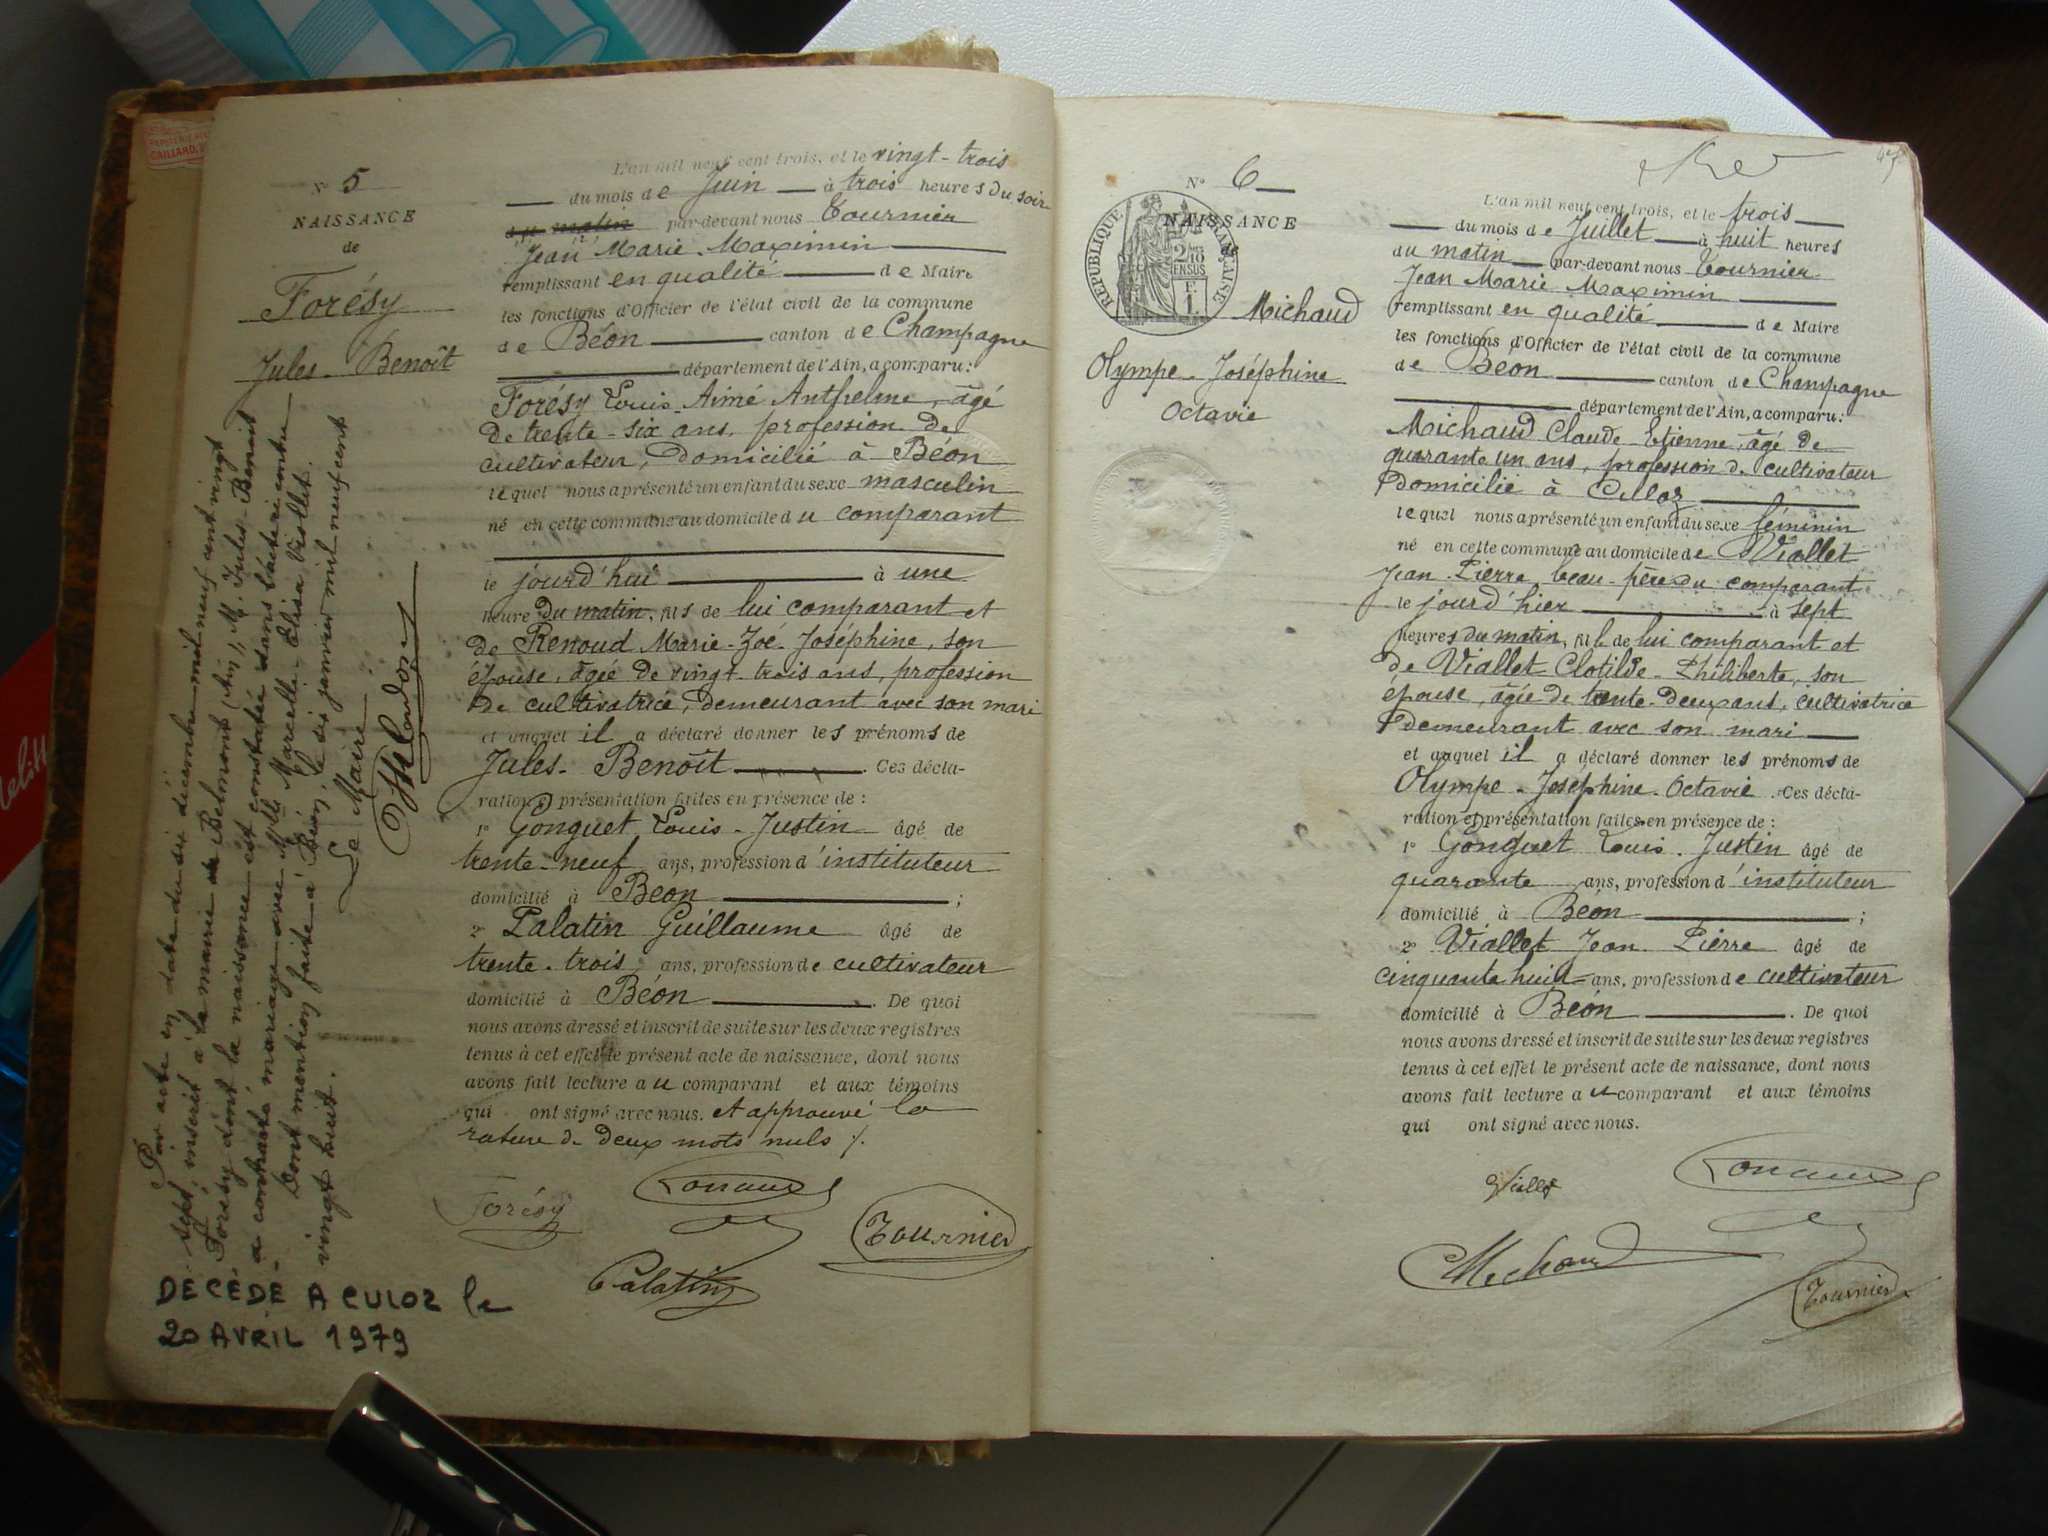 N° 5
NAISSANCE
de
Forésy
Jules-Benoît
L'an mil neuf cent trois, et le vingt-trois
du mois de Juin à trois heures du soir
du matin par-devant nous Tournier
Jean Marie Maximin
remplissant en qualité de Maire
les fonctions d'Officier de l'état civil de la commune
de Béon canton de Champagne
département de l'Ain, a comparu:
Forésy Louis-Aimé Anthelme, âgé
de trente-six ans, profession de
cultivateur, domicilié à Béon
lequel nous a présenté un enfant du sexe masculin
né en cette commune au domicile du comparant
le jourd'hui à une
heure du matin, fils de lui comparant et
de Renoud Marie-Zoé-Joséphine, son
épouse, âgée de vingt-trois ans, profession
de cultivatrice, demeurant avec son mari
et auquel il a déclaré donner les prénoms de
Jules-Benoît. Ces décla-
ration et présentation faites en présence de :
1° Gonguet Louis-Justin âgé de
trente-neuf ans, profession d'instituteur
domicilié à Béon ;
2° Palatin Guillaume âgé de
trente-trois ans, profession de cultivateur
domicilié à Béon. De quoi
nous avons dressé et inscrit de suite sur les deux registres
tenus à cet effet le présent acte de naissance, dont nous
avons fait lecture au comparant et aux témoins
qui ont signé avec nous. et approuvé la
rature de deux mots nuls
Forésy
Tournier
Palatin
Par acte en date du six décembre mil neuf cent vingt
sept, inscrit à la mairie de Belmont (Ain), M. Jules-Benoit
Forésy dont la naissance est constatée dans l'acte ci-contre
a contracté mariage avec Mlle Marcelle-Elisa Viollet.
Dont mention faite à Béon, le six janvier mil neuf cent
vingt huit.
Le Maire
DÉCÉDÉ A CULOZ le
20 AVRIL 1979
N° 6
NAISSANCE
de
RÉPUBLIQUE FRANÇAISE
Michaud
Olympe-Joséphine
Octavie
L'an mil neuf cent trois, et le trois
du mois de Juillet à huit heures
du matin par-devant nous Tournier
Jean Marie Maximin
remplissant en qualité de Maire
les fonctions d'Officier de l'état civil de la commune
de Béon canton de Champagne
département de l'Ain, a comparu:
Michaud Claude-Etienne, âgé de
quarante un ans, profession de cultivateur
domicilié à Culoz
lequel nous a présenté un enfant du sexe féminin
né en cette commune au domicile de Viallet
Jean-Pierre, beau-père du comparant
le jourd'hier à sept
heures du matin, fille de lui comparant et
de Viallet Clotilde-Philiberte, son
épouse, âgée de trente-deux ans, cultivatrice
demeurant avec son mari
et auquel il a déclaré donner les prénoms de
Olympe-Joséphine-Octavie. Ces décla-
ration et présentation faites en présence de :
1° Gonguet Louis-Justin âgé de
quarante ans, profession d'instituteur
domicilié à Béon ;
2° Viallet Jean-Pierre âgé de
cinquante huit ans, profession de cultivateur
domicilié à Béon. De quoi
nous avons dressé et inscrit de suite sur les deux registres
tenus à cet effet le présent acte de naissance, dont nous
avons fait lecture au comparant et aux témoins
qui ont signé avec nous.
Michaud
Tournier